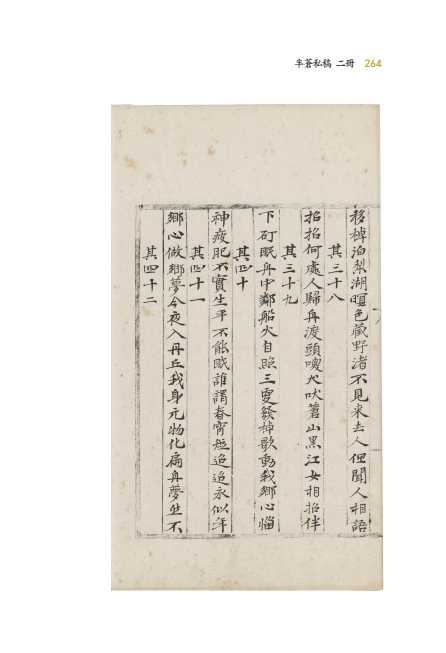 半蒼私稿 二冊 264
移棹泊梨湖暝色藏野渚不見來去人但聞人相語
其三十八
招招何處人歸舟渡頭喚犬吠碧山黑江女相招伴
其三十九
下矴眠舟中鄰船火自照三更發棹歌動我鄉心惱
其四十
神疲肥不實生平不能賦誰謂春宵短迢迢永似年
其四十一
鄉心做鄉夢今夜入丹丘我身元物化扁舟夢亦不
其四十二